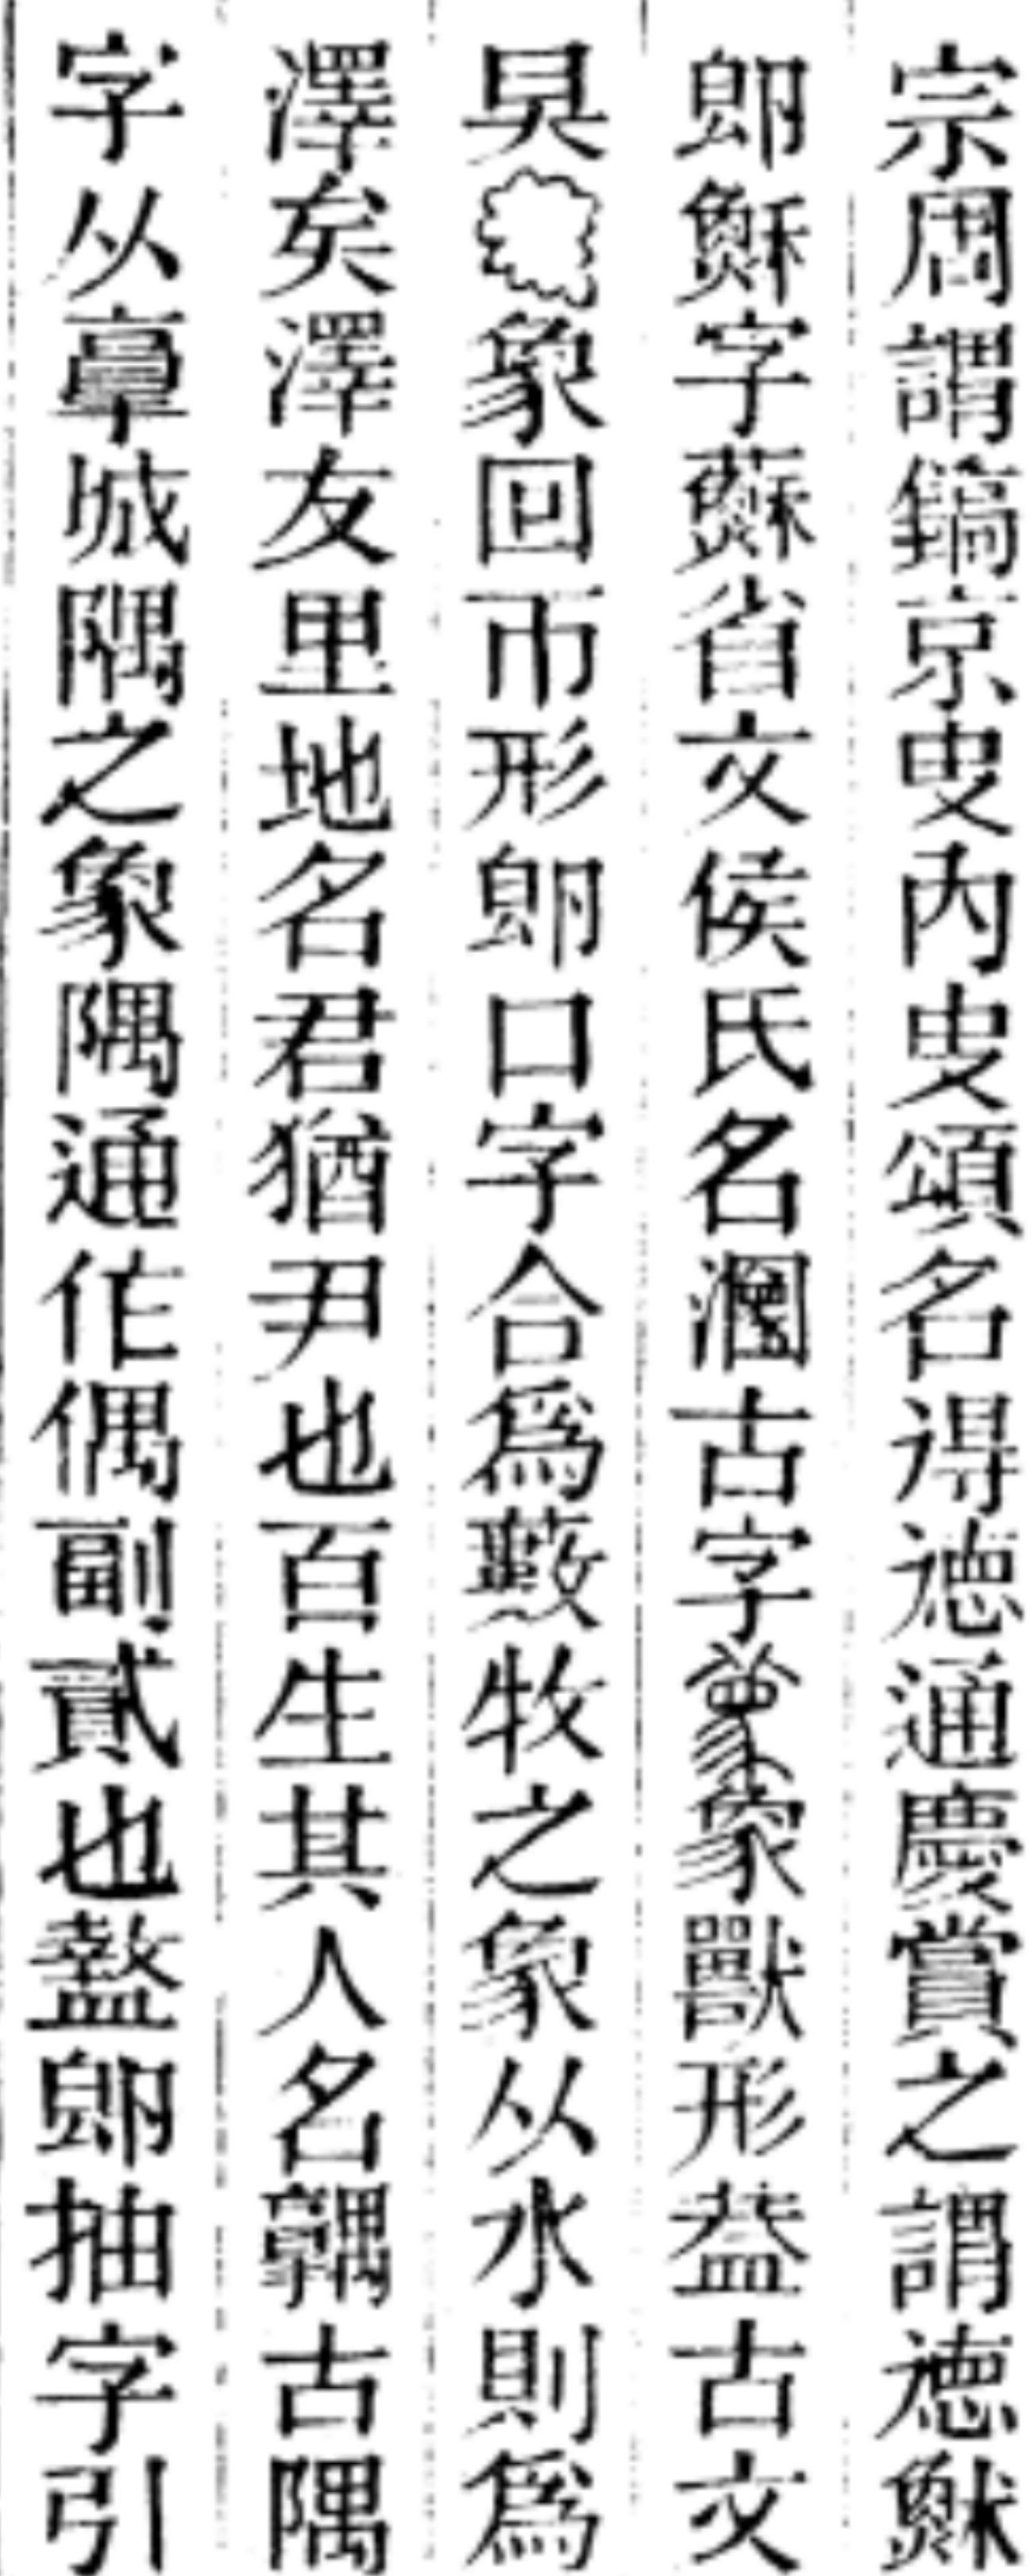 宗周謂鎬京叓內叓頌名得德通慶賞之謂德
卽穌字蘇省文侯氏名古字象獸形葢古文
㚖象回帀形卽口字合爲藪牧之象从水則爲
澤矣澤友里地名君猶尹也百生其人名古隅
字从𩫏城隅之象隅通作偶副貳也盩卽抽字引